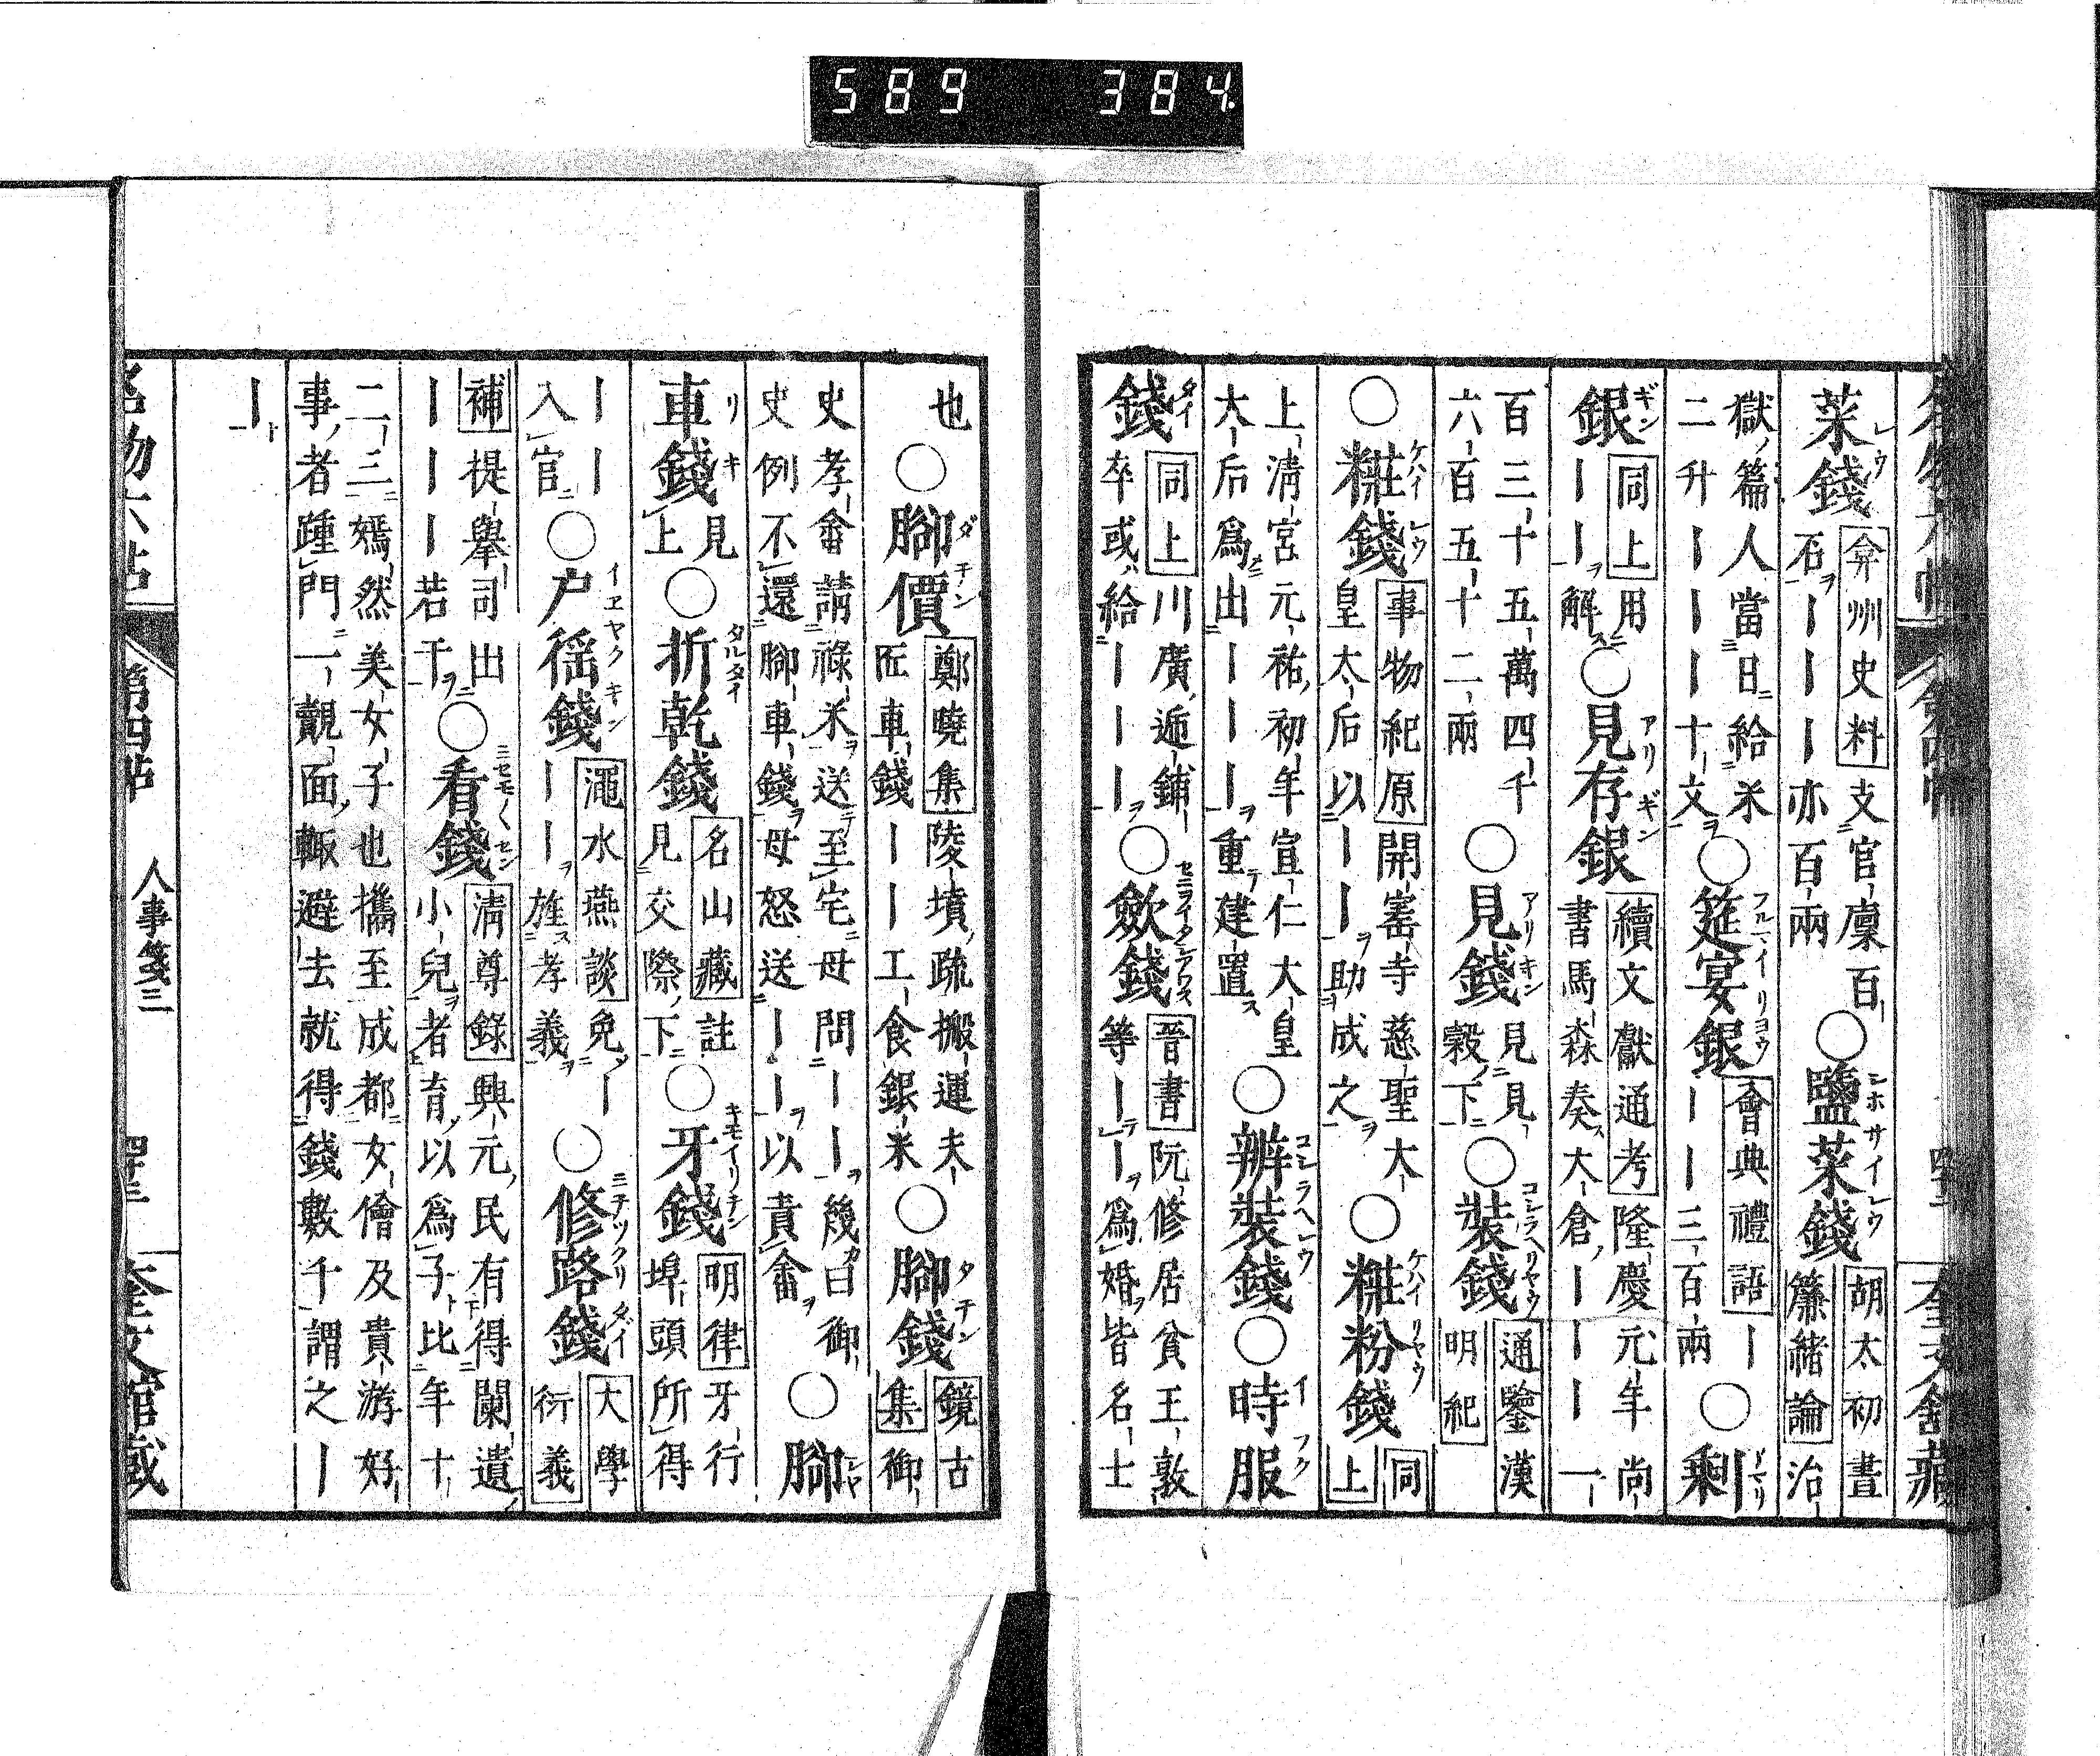 菜錢 弇州史料支官廩百石｜｜｜亦百兩○鹽菜錢 胡太初晝簾緒論治
獄篇人當日給米二升｜｜｜十文○筵宴銀 會典禮語｜｜｜三百兩○剩
銀 同上用｜｜解○見存銀 續文獻通考隆慶元年尚書馬森奏大倉｜｜｜一
百三十五萬四千六百五十二兩○見錢 見見穀下○裝錢 通鑒漢明紀
○粧錢 事物紀原開寳寺慈聖大皇太后以｜｜助成之○粧粉錢 同上
上清宮元祐初年宣仁大皇太后爲出｜｜｜重建置○辦裝錢○時服
錢 同上川廣遞鋪卒或給｜｜｜○歛錢 晉書阮修居貧王敦等｜｜爲婚皆名士
也○腳價 鄭曉集陵墳疏搬運夫匠車錢｜｜工食銀米○腳錢 鏡古集御
史孝畬請祿米送至宅母問｜｜幾曰御史例不還腳車錢母怒送｜｜以責畬○腳
車錢 見上○折乾錢 名山藏註見交際下○牙錢 明律牙行埠頭所得
｜｜｜入官○户徭錢 澠水燕談免｜｜｜旌孝義○修路錢 大學衍義
補提舉司出｜｜｜若干○看錢 清尊錄興元民有得闌遺小兒者育以爲子比年十
二三嫣然美女子也攜至成都女儈及貴游好
事者踵門一覿面輒避去就得錢數千謂之｜
｜
名物六帖 第四帖 人事箋三 四十三 奎文館藏
589 384